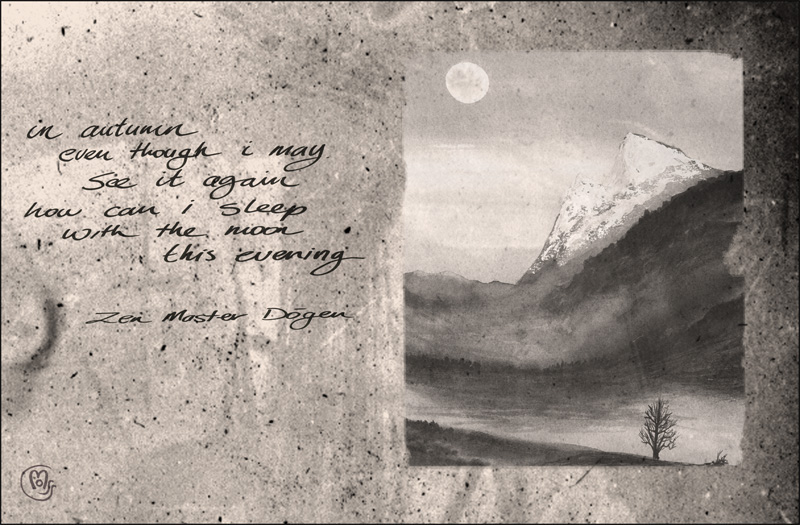 in autumn
even though i may
See it again
how can i sleep
with the moon
this evening
Zen Master Dōgen